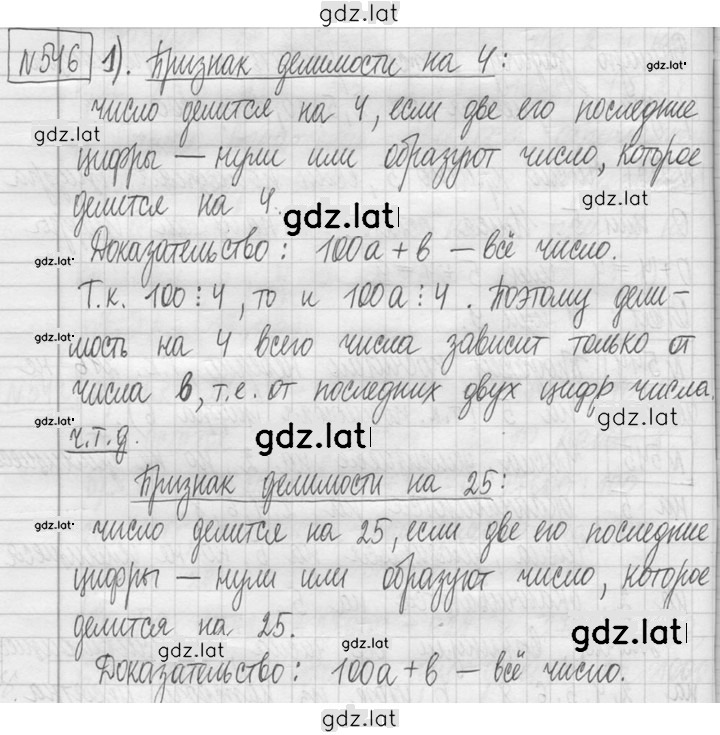 gdz.lat
№546 1). Признак делимости на 4:
gdz.lat
число делится на 4, если две его последние
gdz.lat
цифры — нули или образуют число, которое
gdz.lat
делится на 4.
gdz.lat
Доказательство: 100а + в — всё число.
gdz.lat
Т.к. 100⋮4, то и 100а⋮4. Поэтому дели-
gdz.lat
мость на 4 всего числа зависит только от
числа в, т.е. от последних двух цифр числа.
gdz.lat gdz.lat
ч.т.д. gdz.lat
Признак делимости на 25:
gdz.lat
число делится на 25, если две его последние
цифры — нули или образуют число, которое
делится на 25.
gdz.lat gdz.lat gdz.lat
Доказательство: 100а + в — всё число.
gdz.lat